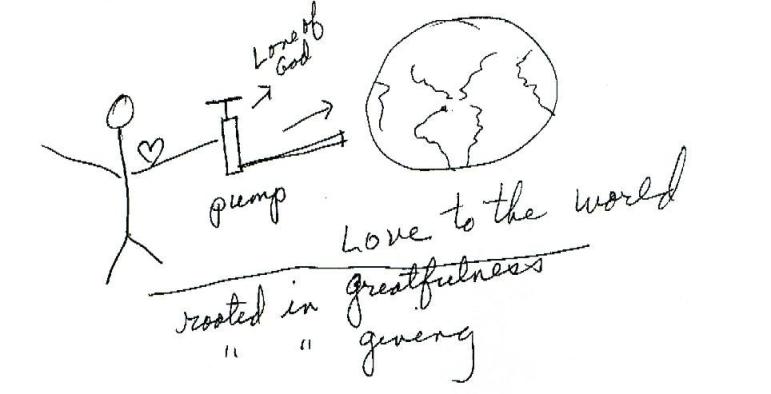 Love of
God
pump
Love to the world
rooted in greatfulness
" " giveng